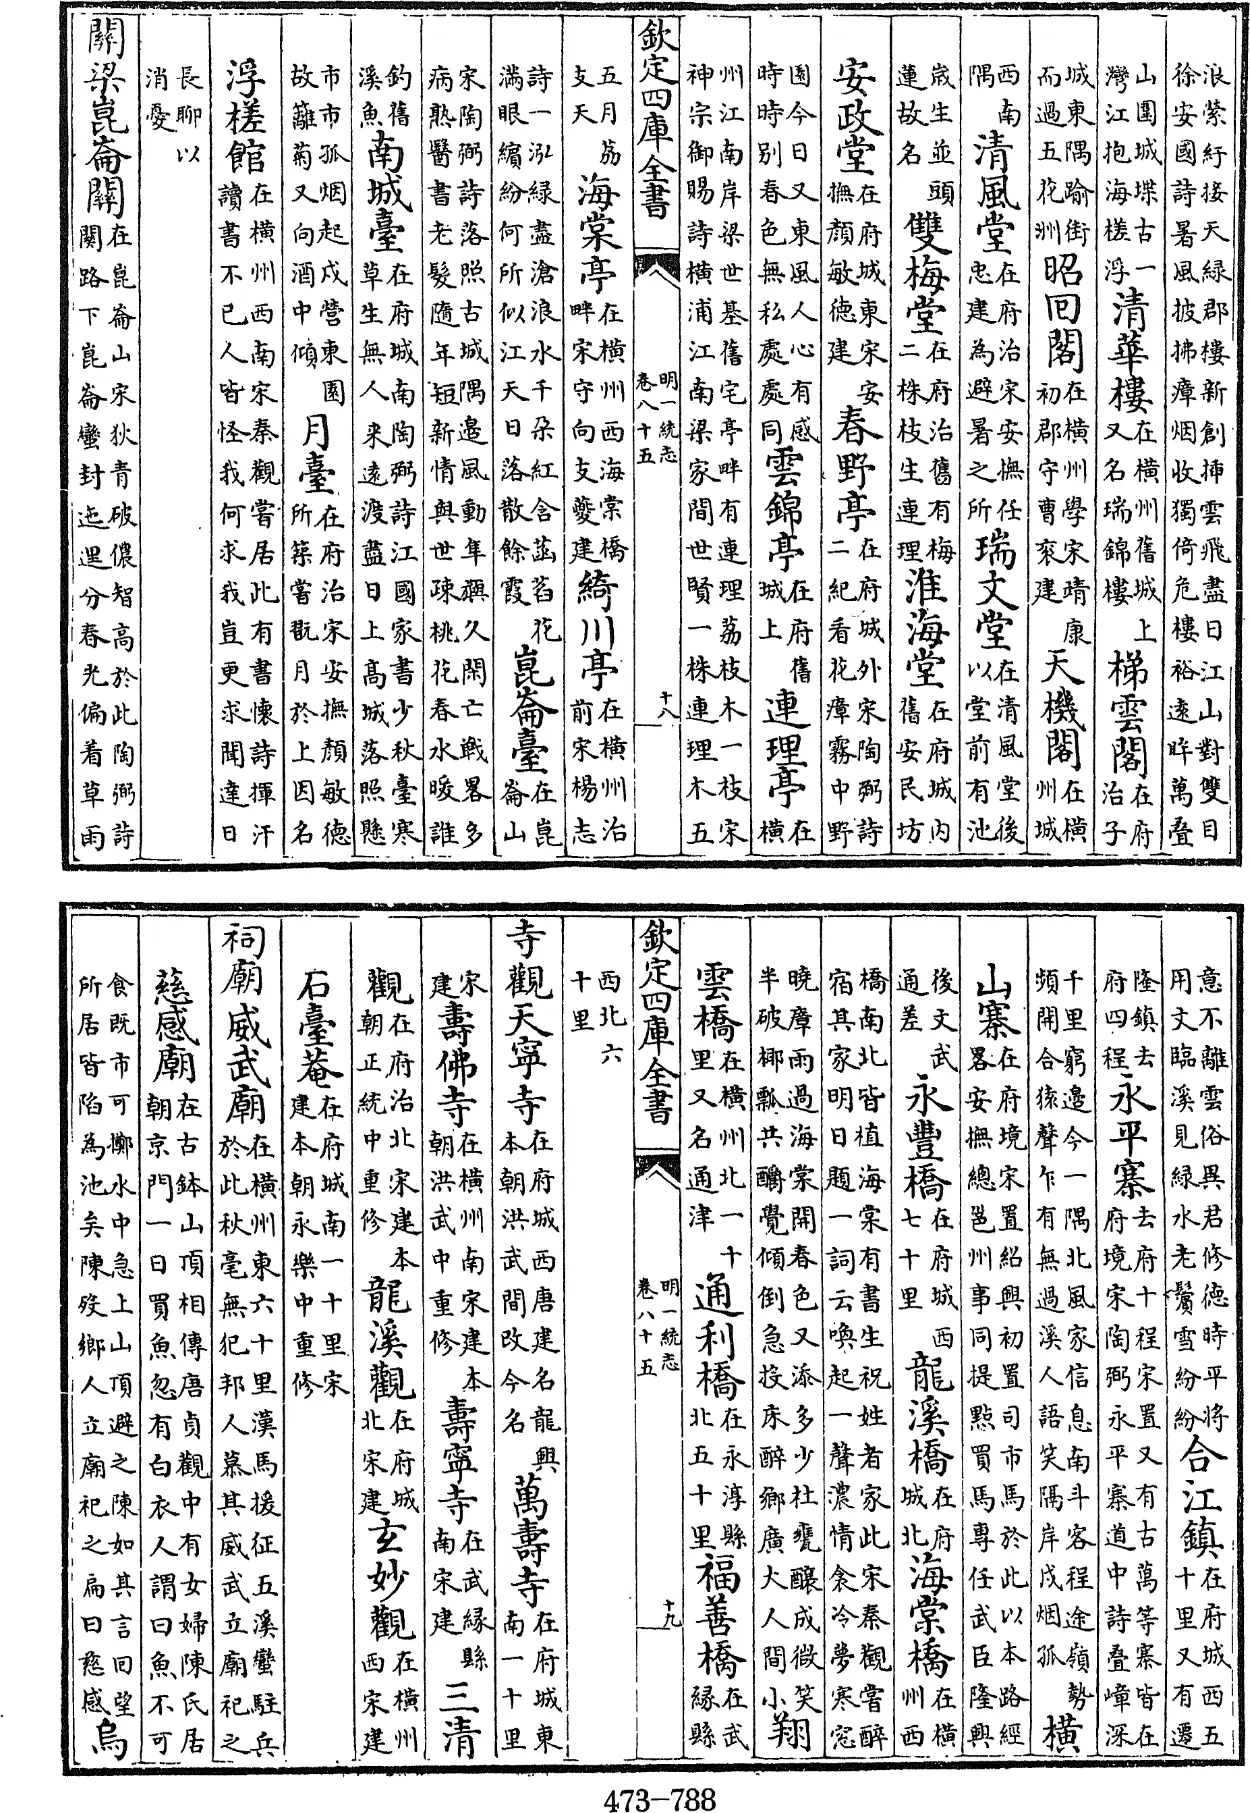 浪縈紆接天緑郡樓新創揷雲飛盡日江山對雙目
徐安國詩暑風披拂瘴烟收獨倚危樓裕遠眸萬疊
山圍城堞古一灣江抱海槎浮清華樓在橫州舊城上又名瑞錦樓梯雲閣在府治子
城東隅踰街而過五花洲昭回閣在橫州學宋靖康初郡守曹衮建天機閣在橫州城
西南隅清風堂在府治宋安撫任忠建為避暑之所瑞文堂在清風堂後以堂前有池
嵗生並頭蓮故名雙梅堂在府治舊有梅二株枝生連理淮海堂在府城内舊安民坊
安政堂在府城東宋安撫顔敏徳建春野亭在府城外宋陶弼詩二紀看花瘴霧中野
園今日又東風人心有感時時别春色無私處處同雲錦亭在府舊城上連理亭在橫
州江南岸梁世基舊宅亭畔有連理荔枝木一枝宋
神宗御賜詩橫浦江南梁家間世賢一株連理木五
欽定四庫全書 明一統志 卷八十五 十八
五月荔支天海棠亭在橫州西海棠橋畔宋守向支夔建綺川亭在橫州治前宋楊志
詩一泓緑盡滄浪水千朵紅含菡萏花滿眼繽紛何所似江天日落散餘霞崑崙臺在崑崙山
宋陶弼詩落照古城隅邉風動年稱久閑亡戰畧多
病熟醫書老髮隨年短新情與世疎桃花春水暖誰
釣舊溪魚南城臺在府城南陶弼詩江國家書少秋臺寒草生無人来遠渡盡日上高城落照懸
市市孤烟起戍營東園故籬菊又向酒中傾月臺在府治宋安撫顔敏徳所築嘗翫月於上因名
浮槎館在橫州西南宋秦觀嘗居此有書懷詩揮汗讀書不已人皆怪我何求我豈更求聞達日
長聊以消憂
關梁崑崙關在崑崙山宋狄青破儂智高於此陶弼詩関路下崑崙蠻封迤邐分春光偏着草雨
意不離雲俗異君修徳時平將
用文臨溪見緑水老鬢雪紛紛合江鎮在府城西五十里又有遷
隆鎮去府四程永平寨去府十程宋置又有古萬等寨皆在府境宋陶弼永平寨道中詩疊嶂深
千里窮邉今一隅北風家信息南斗客程途嶺勢
頻開合猿聲乍有無過溪人語笑隔岸戍烟孤橫
山寨在府境宋置紹興初置司市馬於此以本路經畧安撫總邕州事同提㸃買馬專任武臣隆興
後文武通差永豐橋在府城西七十里龍溪橋在府城北海棠橋在橫州西
橋南北皆植海棠有書生祝姓者家此宋秦觀嘗醉
宿其家明日題一詞云喚起一聲濃情衾冷夢寒窓
曉瘴雨過海棠開春色又添多少社甕釀成微笑
半破椰瓢共酌覺傾倒急投床醉鄉廣大人間小翔
雲橋在橫州北一十里又名通津通利橋在永淳縣北五十里福善橋在武緣縣
西北六十里
欽定四庫全書 明一統志 卷八十五 十九
寺觀天寧寺在府城西唐建名龍興本朝洪武間改今名萬壽寺在府城東南一十里
宋建壽佛寺在橫州南宋建本朝洪武中重修壽寧寺在武緣縣南宋建三清
觀在府治北宋建本朝正統中重修龍溪觀在府城北宋建玄妙觀在橫州西宋建
石臺菴在府城南一十里宋建本朝永樂中重修
祠廟威武廟在橫州東六十里漢馬援征五溪蠻駐兵於此秋毫無犯邦人慕其威武立廟祀之
慈感廟在古鉢山頂相傳唐貞觀中有女婦陳氏居朝京門一日買魚忽有白衣人謂曰魚不可
食既市可擲水中急上山頂避之陳如其言囘望
所居皆陷為池矣陳殁鄉人立廟祀之扁曰慈感烏
473-788